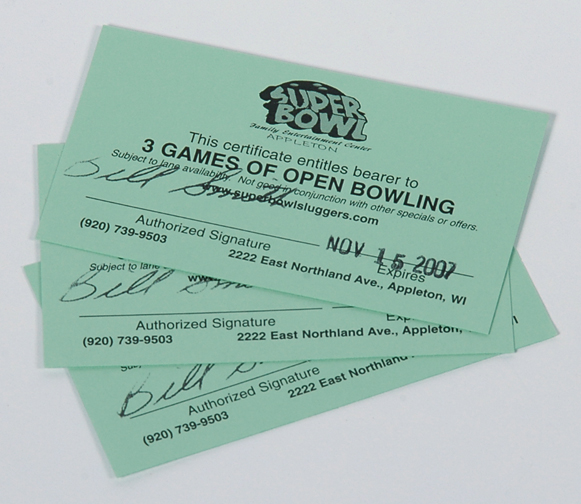 SUPER
BOWL
Family Entertainment Center
APPLETON
This certificate entitles bearer to
3 GAMES OF OPEN BOWLING
Subject to lane availability. Not good in conjunction with other specials or offers.
www.superbowlsluggers.com
Bill
Authorized Signature
NOV 15 2007
Expires
(920) 739-9503
2222 East Northland Ave., Appleton, WI
Subject to lane
www
Bill
Authorized Signature
Exp
(920) 739-9503
2222 East Northland Ave., Appleton,
Bill
Authorized Signature
(920) 739-9503
2222 East Northland